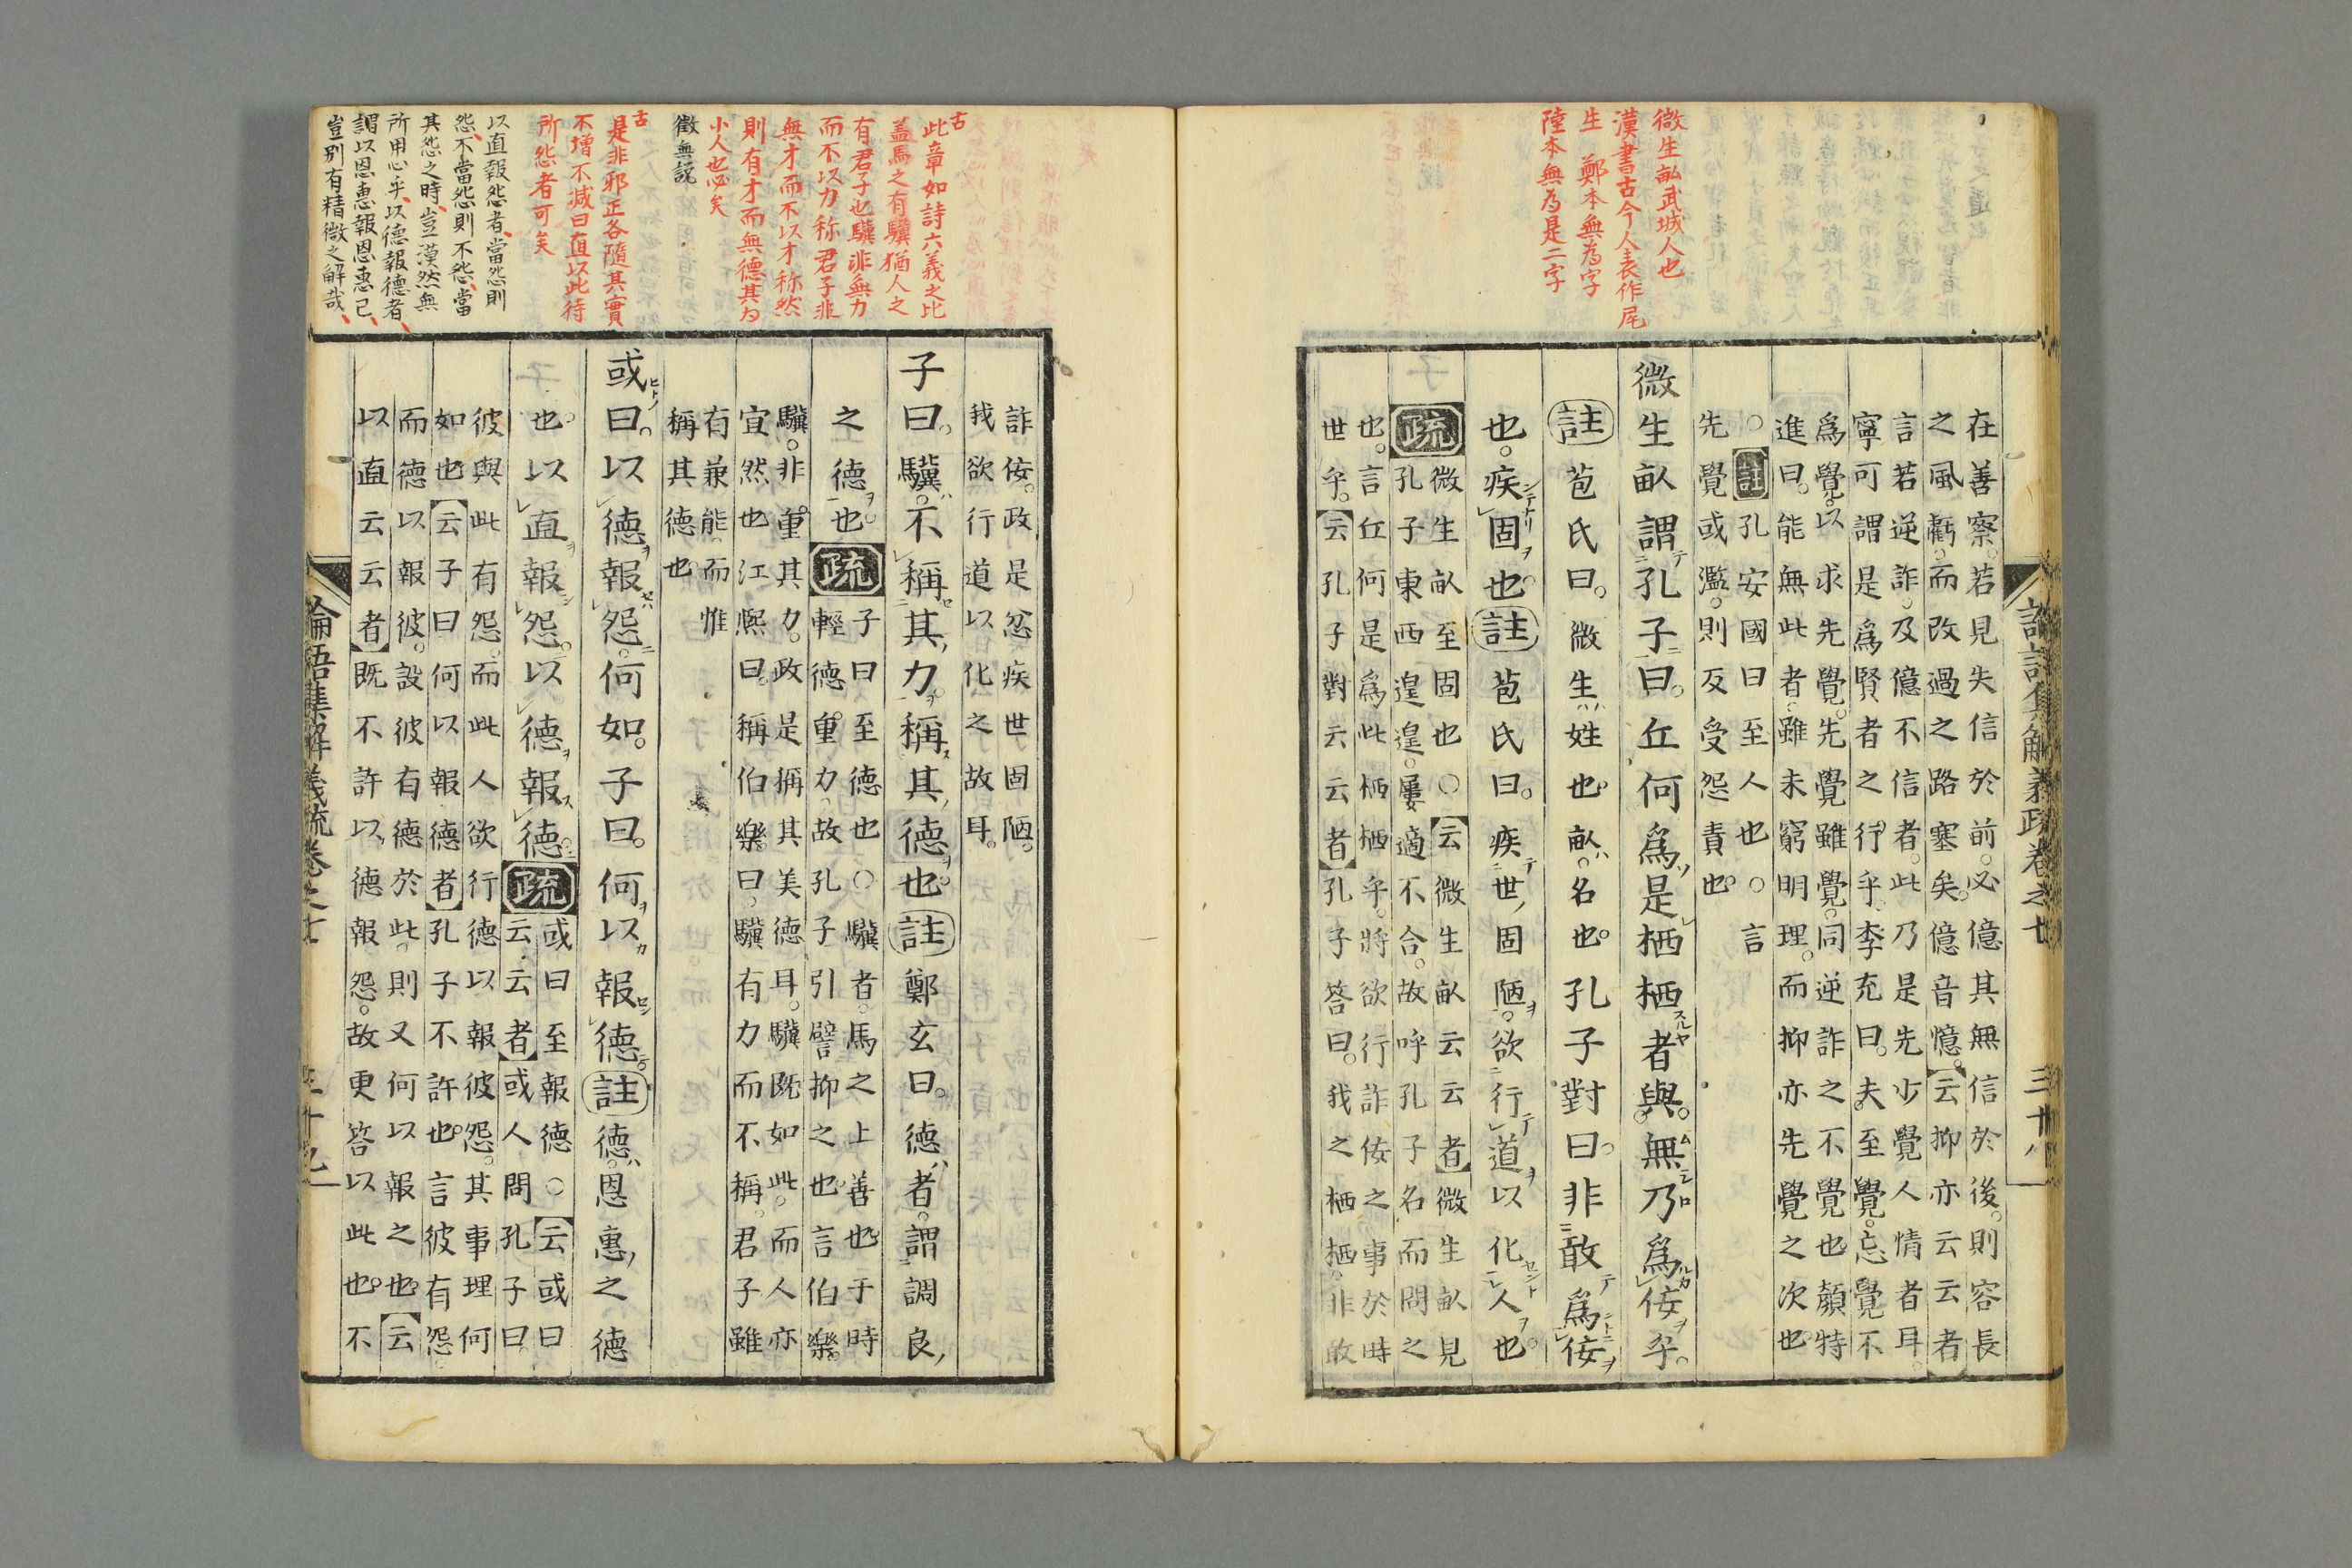 微生畝武城人也
漢書古今人表作尾
生　鄭本無為字
陸本無為是二字
在善察。若見失信於前。必億其無信於後。則容長
之風虧。而改過之路塞矣。億音憶。【云抑亦云云者】
言若逆詐。及億不信者。此乃是先少覺人情者耳。
寧可謂是爲賢者之行乎。李充曰。夫至覺。忘覺不
爲覺。以求先覺。先覺雖覺。同逆詐之不覺也。顏特
進曰。能無此者。雖未窮明理。而抑亦先覺之次也。
○註孔安國曰至人也○言
先覺或濫。則反受怨責也。
微生畝謂孔子曰。丘何爲是栖栖者與。無乃爲佞乎。
註苞氏曰。微生。姓也。畝。名也。孔子對曰。非敢爲佞
也。疾固也。註苞氏曰。疾世固陋。欲行道以化人也。
疏微生畝至固也○【云微生畝云云者】微生畝見
孔子東西遑遑。屢適不合。故呼孔子名而問之
也。言丘何是爲此栖栖乎。將欲行詐佞之事於時
世乎。【云孔子對云云者】孔子答曰。我之栖栖。非敢
論語集解義疏卷之七
三十八
古
此章如詩六義之比
蓋馬之有驥猶人之
有君子也驥非無力
而不以力称君子非
無才而不以才称然
則有才而無德其為
小人也必矣
徵無説
古
是非邪正各隨其實
不增不減曰直以此待
所怨者可矣
以直報怨者、當怨則
怨、不當怨則不怨、當
其怨之時、豈漠然無
所用心乎、以德報德者、
謂以恩惠報恩惠已、
豈別有精微之解哉、
詐佞。政是忿疾世固陋。
我欲行道以化之故耳。
子曰。驥。不稱其力。稱其德也。註鄭玄曰。德者。謂調良
之德也。疏子曰至德也○驥者。馬之上善也。于時
輕德。重力。故孔子引譬抑之也。言伯樂。
驥。非重其力。政是稱其美德耳。驥既如此。而人亦
宜然也。江熈曰。稱伯樂。曰。驥有力而不稱。君子雖
有兼能。而惟
稱其德也。
或曰。以德報怨。何如。子曰。何以報德。註德。恩惠之德
也。以直報怨。以德報德。疏或曰至報德○【云或曰
云云者】或人問孔子曰
彼與此有怨。而此人欲行德以報彼怨。其事理何
如也。【云子曰何以報德者】孔子不許也。言彼有怨
而德以報彼。設彼有德於此。則又何以報之也。【云
以直云云者】既不許以德報怨。故更答以此也。不
論語集解義疏卷之七
三十九